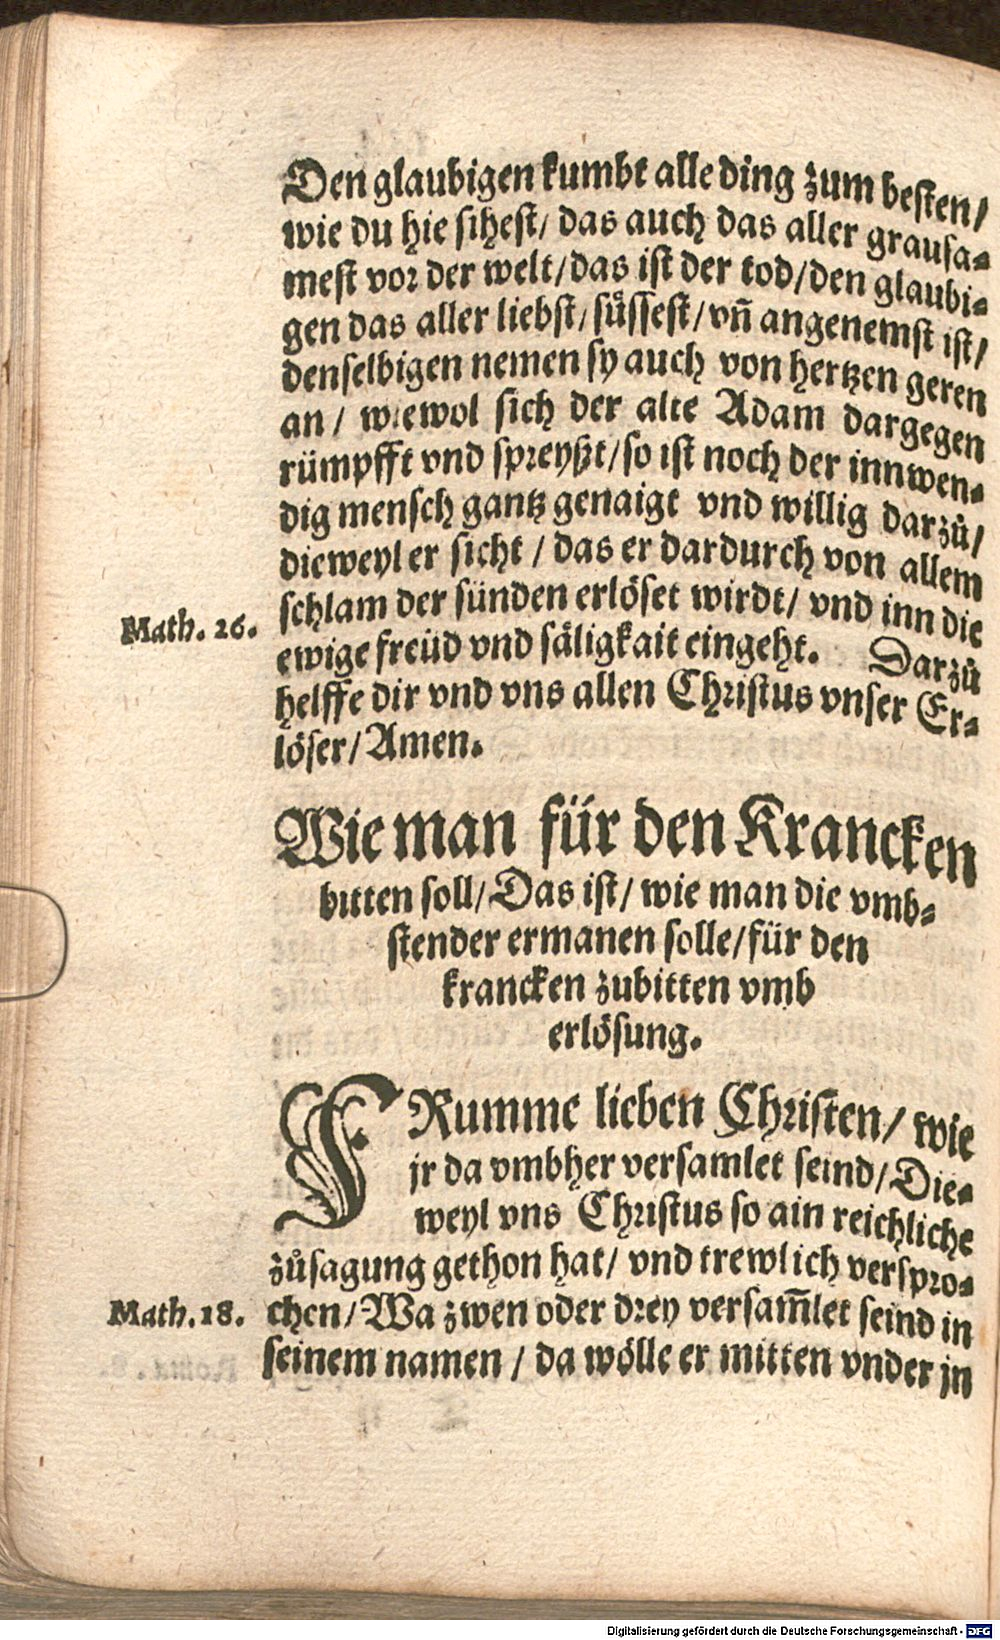 Den glaubigen kumbt alle ding zum besten/
wie du hie sihest/ das auch das aller grausa-
mest vor der welt/das ist der tod/den glaubi-
gen das aller liebst/ suͤssest/ vñ angenemst ist/
denselbigen nemen sy auch von hertzen geren
an/ wiewol sich der alte Adam dargegen
rümpfft vnd spreyßt/so ist noch der innwen-
dig mensch gantz genaigt vnd willig darzuͦ/
dieweyl er sicht / das er dardurch von allem
schlam der sünden erlöset wirdt/ vnd inn die
Math. 26.
ewige freüd vnd säligkait eingeht. Darzuͦ
helffe dir vnd vns allen Christus vnser Er-
löser/ Amen.
Wie man für den Krancken
bitten soll/ Das ist/ wie man die vmb-
stender ermanen solle/für den
krancken zubitten vmb
erlösung.
FRumme lieben Christen/ wie
jr da vmbher versamlet seind/ Die-
weyl vns Christus so ain reichliche
zuͦsagung gethon hat/ vnd trewlich verspro-
Math. 18.
chen/ Wa zwen oder drey versam̃let seind in
seinem namen / da wölle er mitten vnder jn
Digitalisierung gefördert durch die Deutsche Forschungsgemeinschaft - DFG